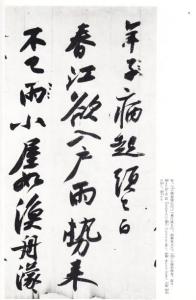 年子病起須已白
春江欲入戶雨勢來
不已雨小屋如漁舟濛